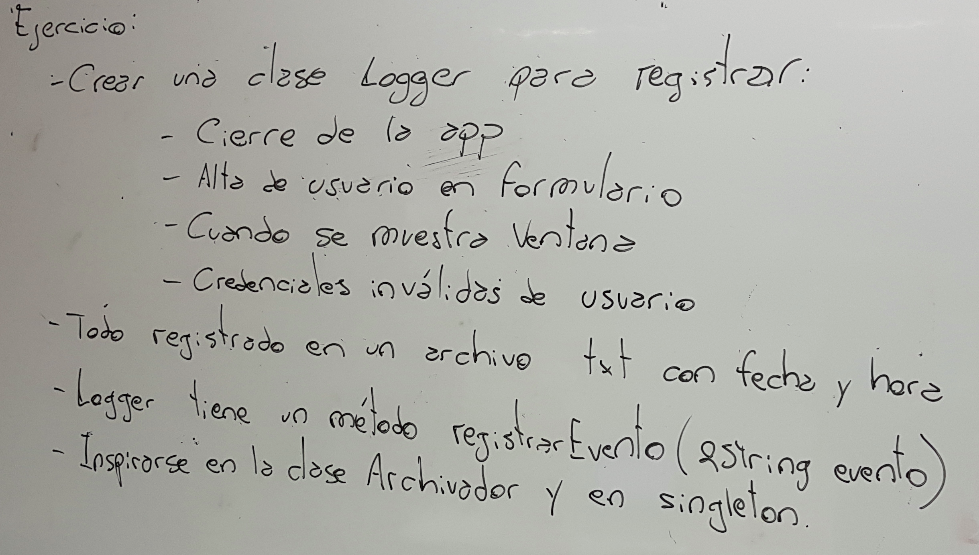 Ejercicio:
- Crear una clase Logger para registrar:
- Cierre de la app
- Alta de usuario en formulario
- Cuando se muestra Ventana
- Credenciales inválidas de usuario
- Todo registrado en un archivo txt con fecha y hora
- Logger tiene un método registrarEvento(QString evento)
- Inspirarse en la clase Archivador y en singleton.